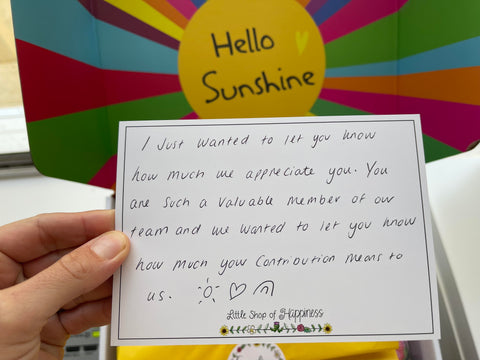 Hello
Sunshine
I Just wanted to let you know
how much we appreciate you. You
are such a valuable member of our
team and we wanted to let you know
how much your contribution means to
us.
Little Shop of Happiness